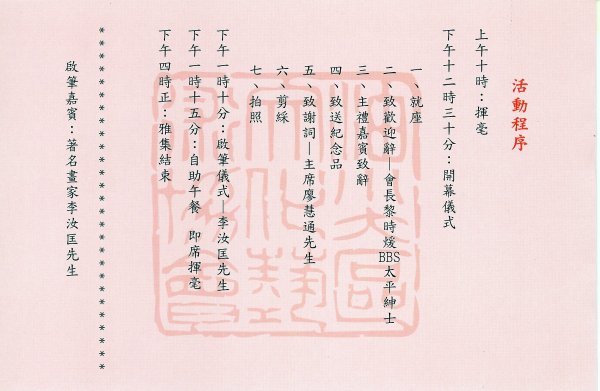 活動程序
上午十時：揮毫
下午十二時三十分：開幕儀式
一、就座
二、致歡迎辭—會長黎時煖BBS太平紳士
三、主禮嘉賓致辭
四、致送紀念品
五、致謝詞—主席廖慧通先生
六、剪綵
七、拍照
下午一時十分：啟筆儀式—李汝匡先生
下午一時十五分：自助午餐 即席揮毫
下午四時正：雅集結束
* * * * * * * * * * * * * * * * * * * * * * * * * *
啟筆嘉賓：著名畫家李汝匡先生